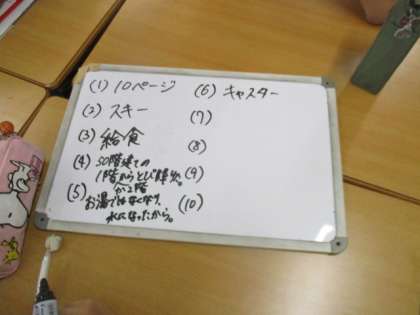 (1) 10ページ
(2) スキー
(3) 給食
(4) 50階建ての
1階からとび降りた
か2階
(5) お湯ではなくなり、
水になったから。
(6) キャスター
(7)
(8)
(9)
(10)